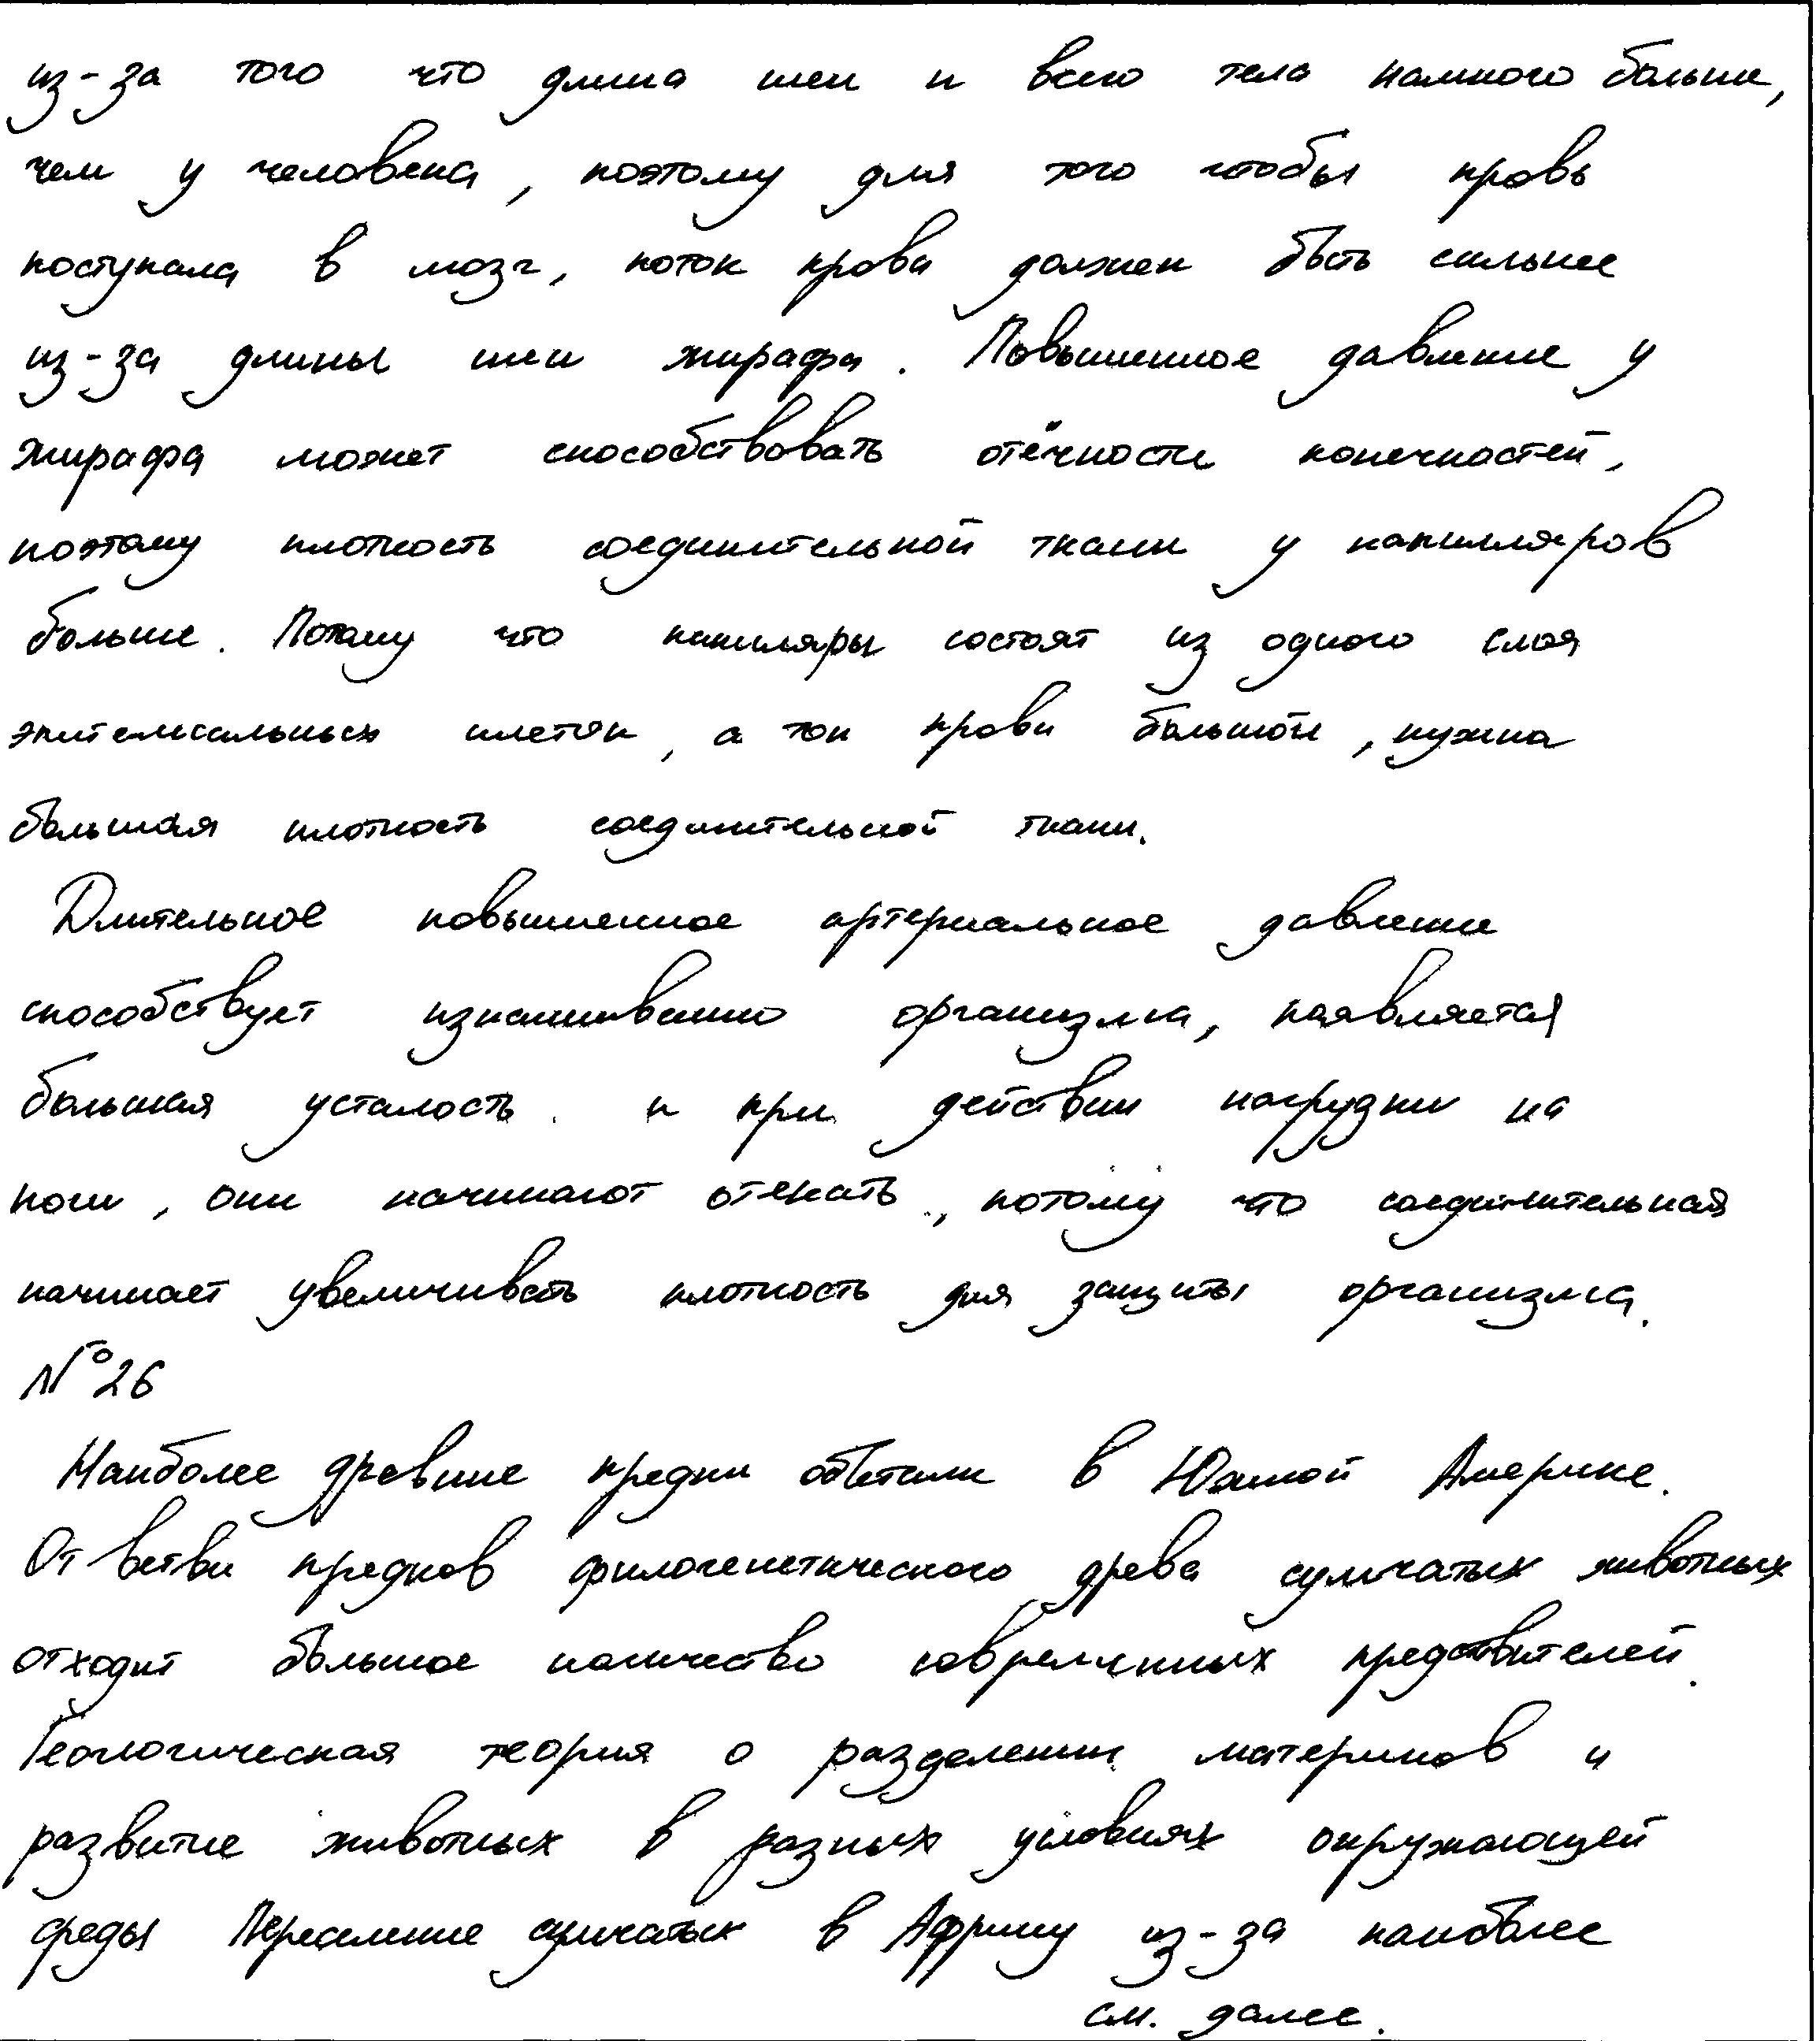 из-за того что длина шеи и всего тела намного больше,
чем у человека, поэтому для того чтобы кровь
поступала в мозг, поток крови должен быть сильнее
из-за длины шеи жирафа. Повышенное давление у
жирафа может способствовать отёчности конечностей,
поэтому плотность соединительной ткани у капилляров
больше. Потому что капиляры состоят из одного слоя
эпителиальных клеток, а ток крови большой, нужна
большая плотность соединительной ткани.
Длительное повышенное артериальное давление
способствует изнашиванию организма, появляется
большая усталость и при действии нагрузки на
ноги, они начинают отекать, потому что соединительная
начинает увеличивать плотность для защиты организма.
№26
Наиболее древние предки обитали в Южной Америке.
От ветви предков филогенетического древа сумчатых животных
отходит большое количество современных представителей.
Геологическая теория о разделении материков и
развитие животных в разных условиях окружающей
среды Переселение сумчатых в Африку из-за наиболее
см. далее.